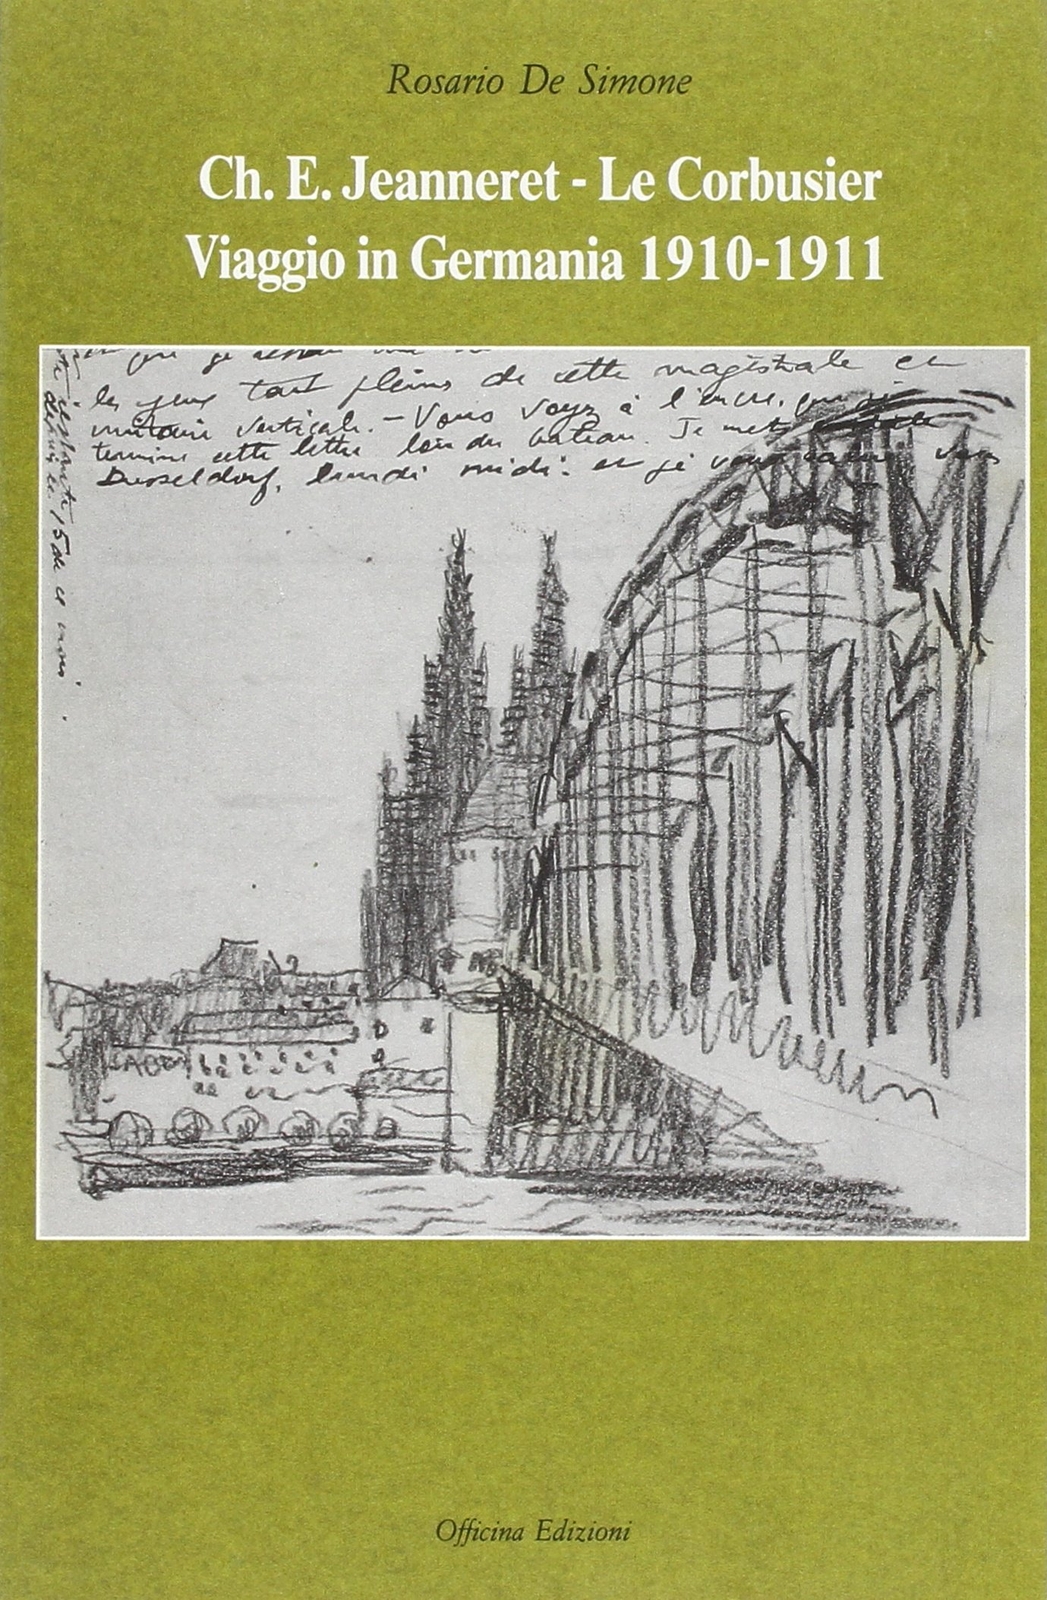 Rosario De Simone
Ch. E. Jeanneret - Le Corbusier
Viaggio in Germania 1910-1911
les yeux tout pleins de cette magistrale et
verticale. — Vous voyez à l'encre, que
termine cette lettre loin du bateau. Je mets
Dusseldorf, lundi midi. et je vous vous
15 de ce mois.
Officina Edizioni